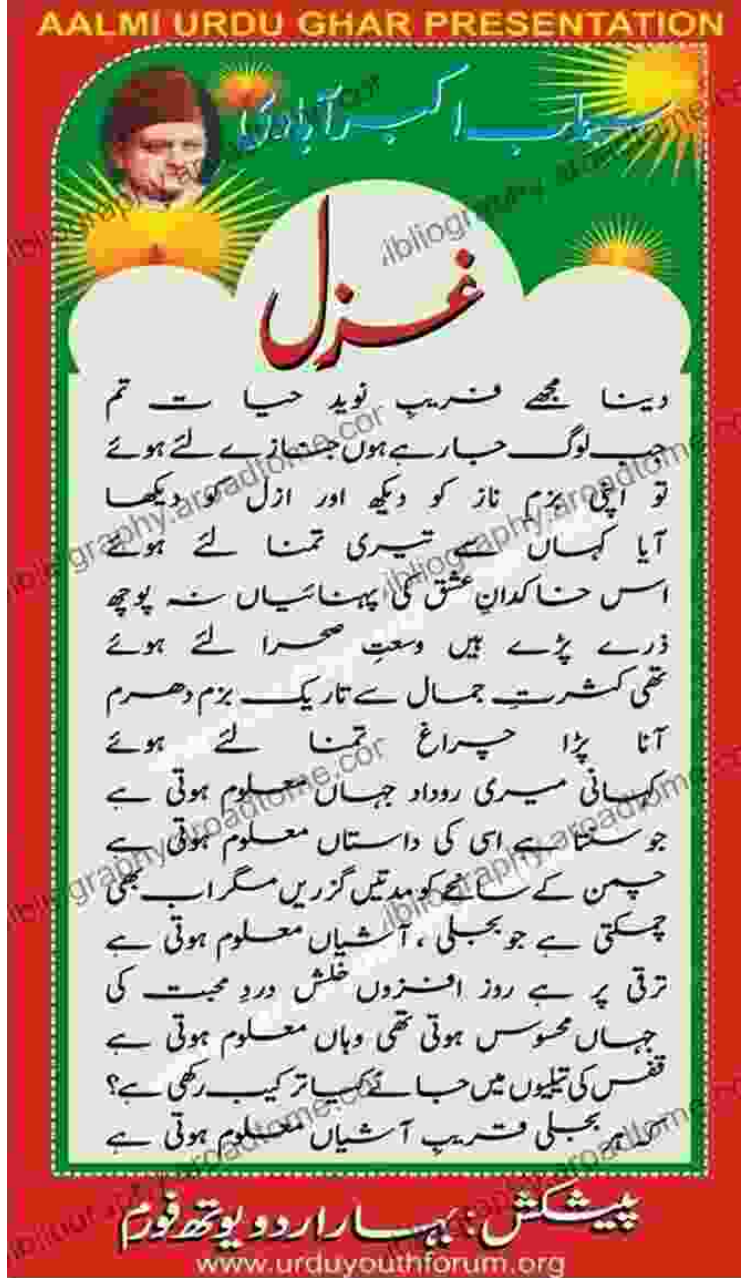 AALMI URDU GHAR PRESENTATION
سیماب اکبر آبادی
غزل
دینا مجھے فریبِ نوید حیا ت تم
جب لوگ جارہے ہوں جنازے لئے ہوئے
تو اپنی بزم ناز کو دیکھ اور ازل کو دیکھا
آیا کہاں سے تیری تمنا لئے ہوئے
اس خاکدانِ عشق کی پہنائیاں نہ پوچھ
ذرے پڑے ہیں وسعتِ صحرا لئے ہوئے
تھی کثرتِ جمال سے تاریک بزم دھرم
آنا پڑا چراغ تمنا لئے ہوئے
کہانی میری روداد جہاں معلوم ہوتی ہے
جو سنتا ہے اسی کی داستاں معلوم ہوتی ہے
چمن کے سانحے کو مدتیں گزریں مگر اب بھی
چمکتی ہے جو بجلی ، آشیاں معلوم ہوتی ہے
ترقی پر ہے روز افزوں خلش دردِ محبت کی
جہاں محسوس ہوتی تھی وہاں معلوم ہوتی ہے
قفس کی تیلیوں میں جانے کیا ترکیب رکھی ہے؟
کہ ہر بجلی قریبِ آشیاں معلوم ہوتی ہے
پیشکش : بہار اردو یوتھ فورم
www.urduyouthforum.org